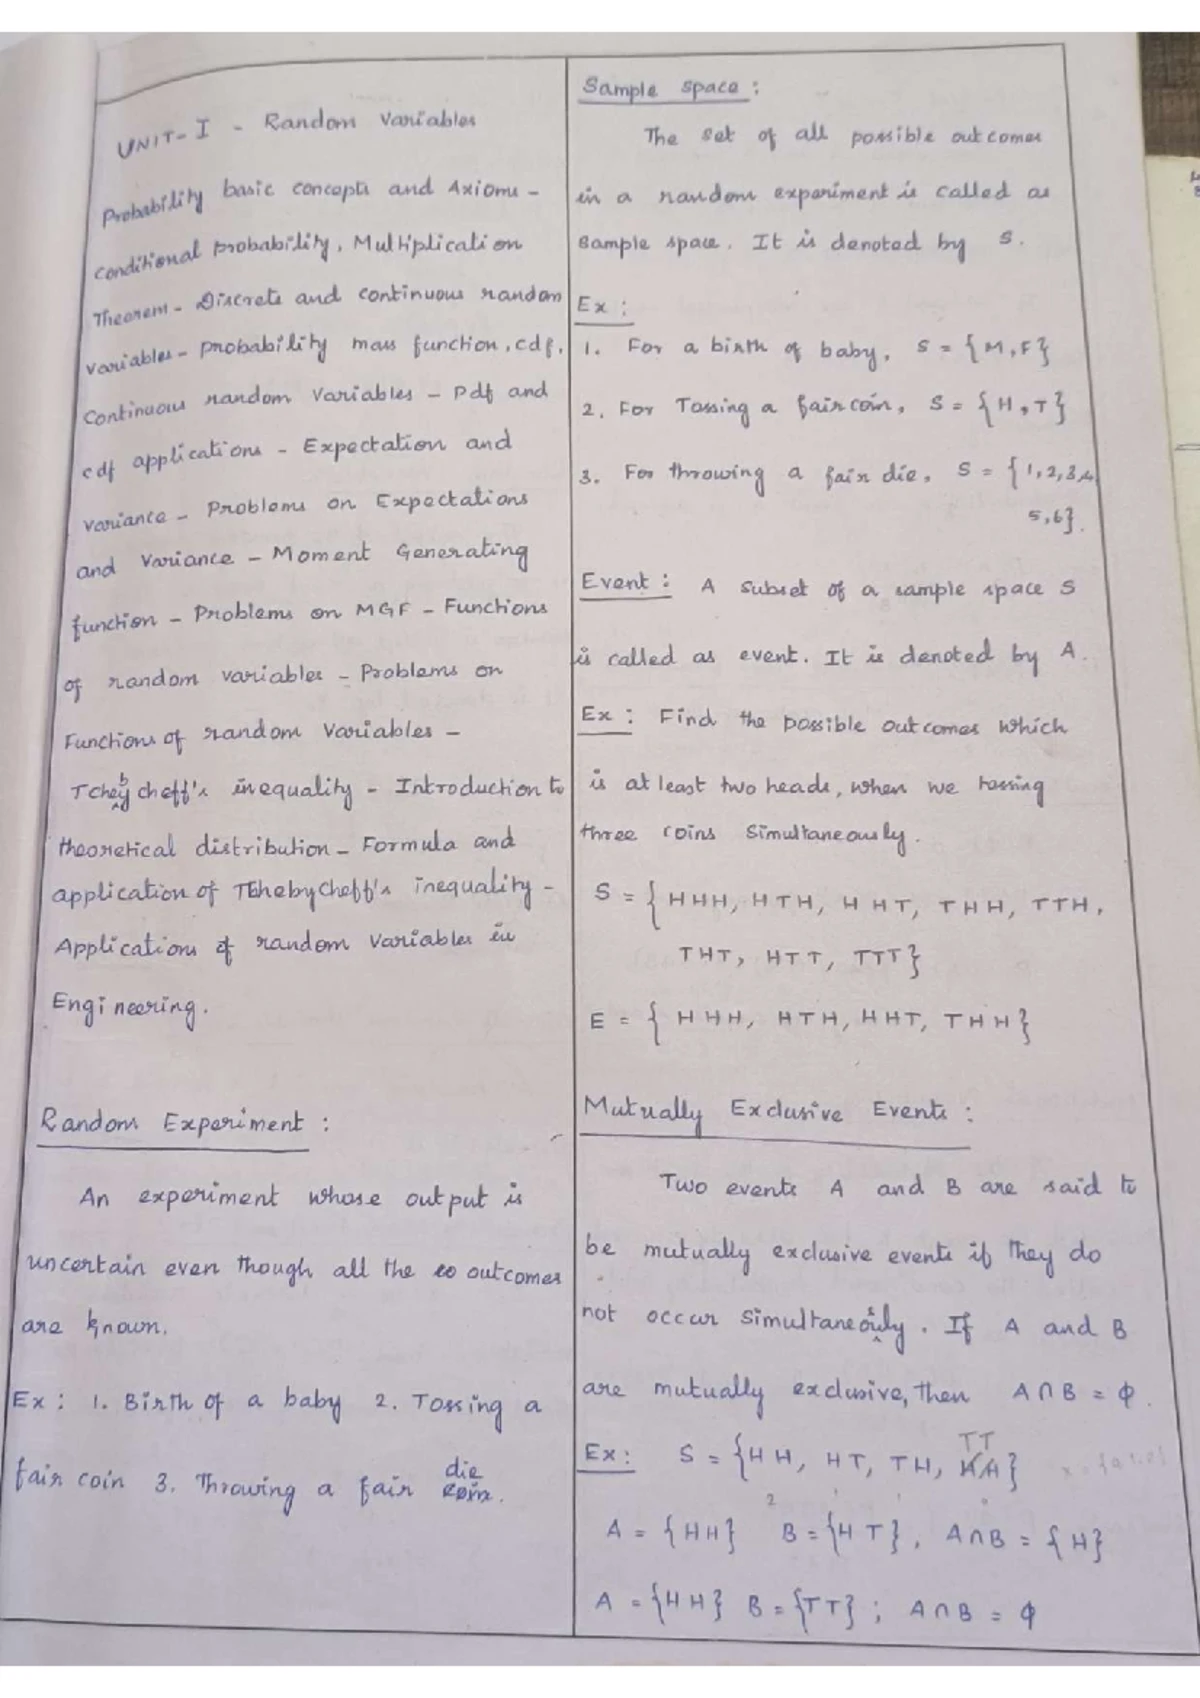 UNIT-I - Random Variables
Probability basic concepts and Axioms -
conditional probability, Multiplication
Theorem - Discrete and continuous random
variables - probability mass function, cdf,
Continuous random Variables - Pdf and
cdf applications - Expectation and
variance - Problems on Expectations
and Variance - Moment Generating
function - Problems on MGF - Functions
of random variables - Problems on
Functions of random Variables -
Tchebycheff's inequality - Introduction to
theoretical distribution - Formula and
application of Tchebycheff's inequality -
Applications of random Variables in
Engineering.
Random Experiment :
An experiment whose output is
uncertain even though all the outcomes
are known.
Ex : 1. Birth of a baby 2. Tossing a
fair coin 3. Throwing a fair die
Sample space :
The set of all possible outcomes
in a random experiment is called as
Sample space. It is denoted by S.
Ex :
1. For a birth of baby, S = {M, F}
2. For Tossing a fair coin, S = {H, T}
3. For throwing a fair die, S = {1,2,3,4
5,6}.
Event : A subset of a sample space S
is called as event. It is denoted by A.
Ex : Find the possible outcomes which
is at least two heads, when we tossing
three coins Simultaneously.
S = {HHH, HTH, HHT, THH, TTH,
THT, HTT, TTT}
E = {HHH, HTH, HHT, THH}
Mutually Exclusive Events :
Two events A and B are said to
be mutually exclusive events if they do
not occur Simultaneously. If A and B
are mutually exclusive, then A∩B = ϕ.
Ex : S = {HH, HT, TH, TT}
A = {HH} B = {HT}, A∩B = {H}
A = {HH} B = {TT} ; A∩B = ϕ